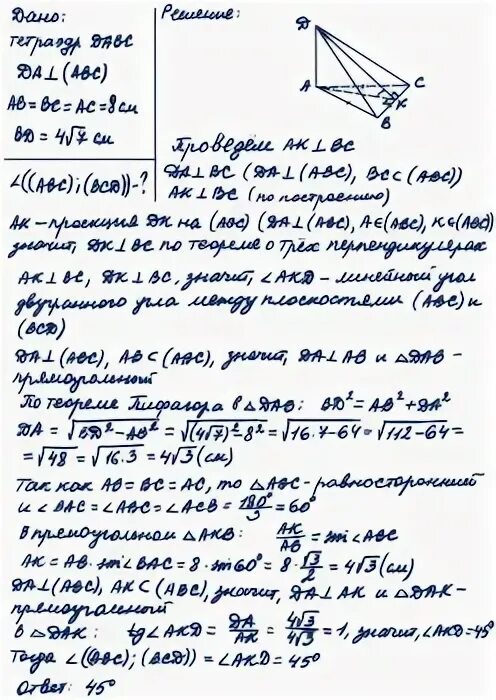 Дано:
тетраэдр DABC
DA⊥(ABC)
AB=BC=AC=8см
BD=4√7 см
∠((ABC);(BCD))-?
Решение:
D
A
C
K
B
Проведем AK⊥BC
DA⊥BC (DA⊥(ABC), BC⊂(ABC))
AK⊥BC (по построению)
AK-проекция DK на (ABC) (DA⊥(ABC), A∈(ABC), K∈(ABC)
значит, DK⊥BC по теореме о трёх перпендикулярах
AK⊥BC, DK⊥BC, значит, ∠AKD-линейный угол
двугранного угла между плоскостями (ABC) и
(BCD)
DA⊥(ABC), AB⊂(ABC), значит, DA⊥AB и △DAB-
прямоугольный
По теореме Пифагора в △DAB: BD²=AB²+DA²
DA=√(BD²-AB²)=√((4√7)²-8²)=√(16·7-64)=√(112-64)=
=√48=√(16·3)=4√3(см)
Так как AB=BC=AC, то △ABC-равносторонний
и ∠BAC=∠ABC=∠ACB=180°/3=60°
В прямоугольном △AKB: AK/AB=sin∠ABC
AK=AB·sin∠BAC=8·sin60°=8·√3/2=4√3(см)
DA⊥(ABC), AK⊂(ABC), значит, DA⊥AK и △DAK-
прямоугольный
В △DAK: tg∠AKD=DA/AK=4√3/4√3=1, значит, ∠AKD=45°
Тогда ∠((ABC);(BCD))=∠AKD=45°
Ответ: 45°